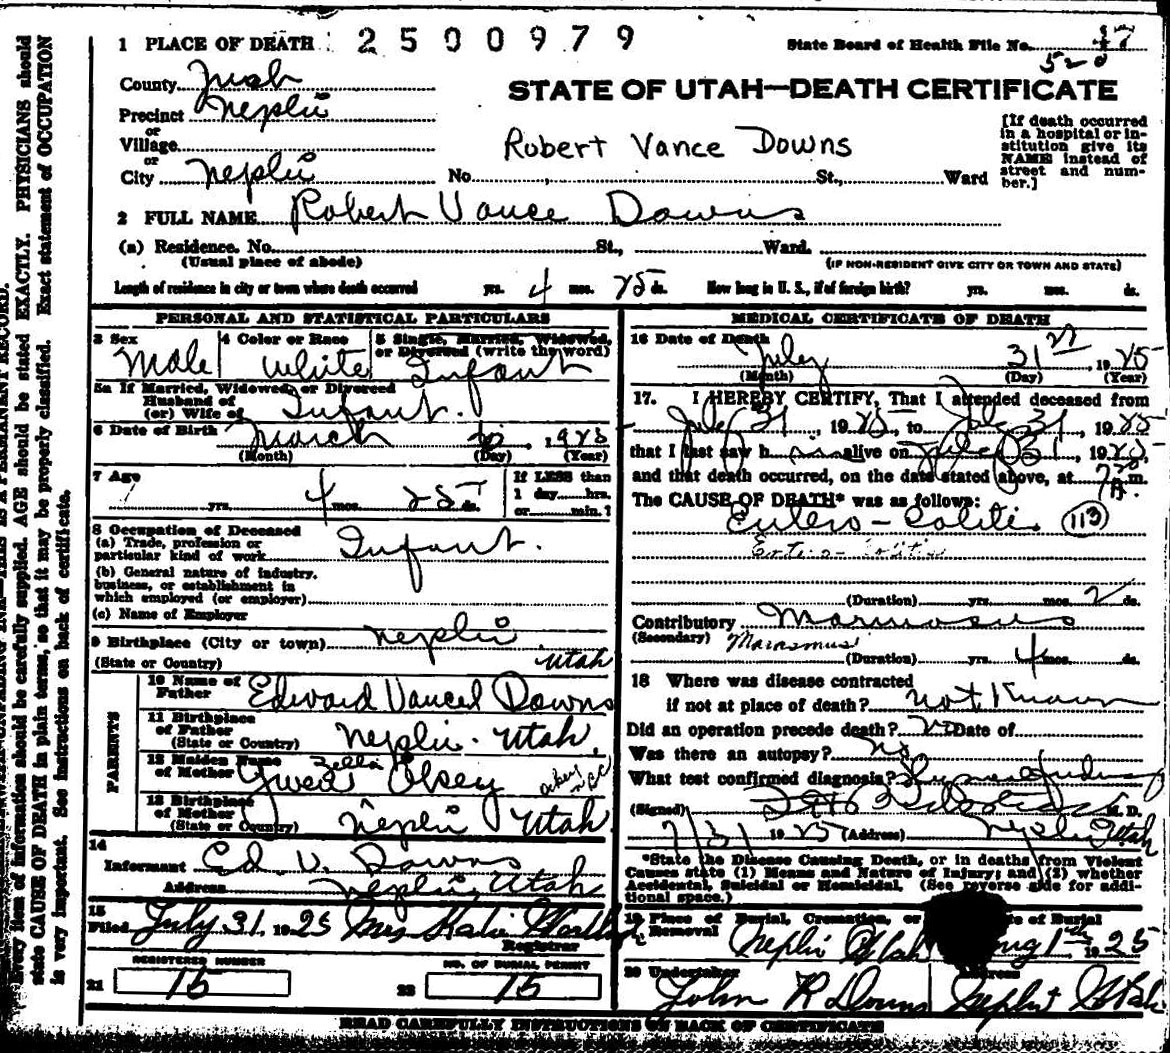 1 PLACE OF DEATH 2500979 State Board of Health File No. 47
520
County Juab
STATE OF UTAH—DEATH CERTIFICATE
Precinct Nephi
or
Village
or
City Nephi No. St., Ward
Robert Vance Downs
[If death occurred
in a hospital or in-
stitution give its
NAME instead of
street and num-
ber.]
2 FULL NAME Robert Vance Downs
(a) Residence. No. St., Ward.
(Usual place of abode) (IF NON-RESIDENT GIVE CITY OR TOWN AND STATE)
Length of residence in city or town where death occurred yrs. 4 mos. 25 ds. How long in U. S., if of foreign birth? yrs. mos. ds.
PERSONAL AND STATISTICAL PARTICULARS
3 Sex 4 Color or Race 5 Single, Married, Widowed,
or Divorced (write the word)
Male White Infant
5a If Married, Widowed, or Divorced
Husband of
(or) Wife of Infant.
6 Date of Birth March 1925
(Month) (Day) (Year)
7 Age
yrs. 4 mos. 25 ds.
If LESS than
1 day hrs.
or min.?
8 Occupation of Deceased
(a) Trade, profession or
particular kind of work Infant.
(b) General nature of industry,
business, or establishment in
which employed (or employer)
(c) Name of Employer
9 Birthplace (City or town) Nephi
(State or Country) Utah
PARENTS
10 Name of
Father Edward Vancel Downs
11 Birthplace
of Father
(State or Country) Nephi. Utah.
12 Maiden Name
of Mother Zella
13 Birthplace
of Mother
(State or Country) Nephi Utah
14
Informant Ed. V. Downs
Address Nephi, Utah
15
Filed July 31, 1925 Mrs
Registrar
REGISTERED NUMBER NO. OF BURIAL PERMIT
21 15 22 15
MEDICAL CERTIFICATE OF DEATH
16 Date of Death
July 31 1925
(Month) (Day) (Year)
17. I HEREBY CERTIFY, That I attended deceased from
July 31, 1925, to July 31, 1925
that I last saw him alive on July 31, 1925.
and that death occurred, on the date stated above, at 7 A. m.
The CAUSE OF DEATH* was as follows:
Entero-Colitis 113
Entero-Colitis
(Duration) yrs. mos. 2 ds.
Contributory Marasmus
(Secondary) Marasmus
(Duration) yrs. 4 mos. ds.
18 Where was disease contracted
if not at place of death? not Known
Did an operation precede death? Date of
Was there an autopsy? No
What test confirmed diagnosis?
(Signed) M. D.
7/31 1925 (Address) Nephi Utah
*State the Disease Causing Death, or in deaths from Violent
Causes state (1) Means and Nature of Injury; and (2) whether
Accidental, Suicidal or Homicidal. (See reverse side for addi-
tional space.)
19 Place of Burial, Cremation, or Date of Burial
Removal Nephi Utah Aug 1 1925
20 Undertaker Address
John R Downs Nephi Utah
READ CAREFULLY INSTRUCTIONS ON BACK OF CERTIFICATE
THIS IS A PERMANENT RECORD.
Every item of information should be carefully supplied. AGE should be stated EXACTLY. PHYSICIANS should
state CAUSE OF DEATH in plain terms, so that it may be properly classified. Exact statement of OCCUPATION
is very important. See instructions on back of certificate.